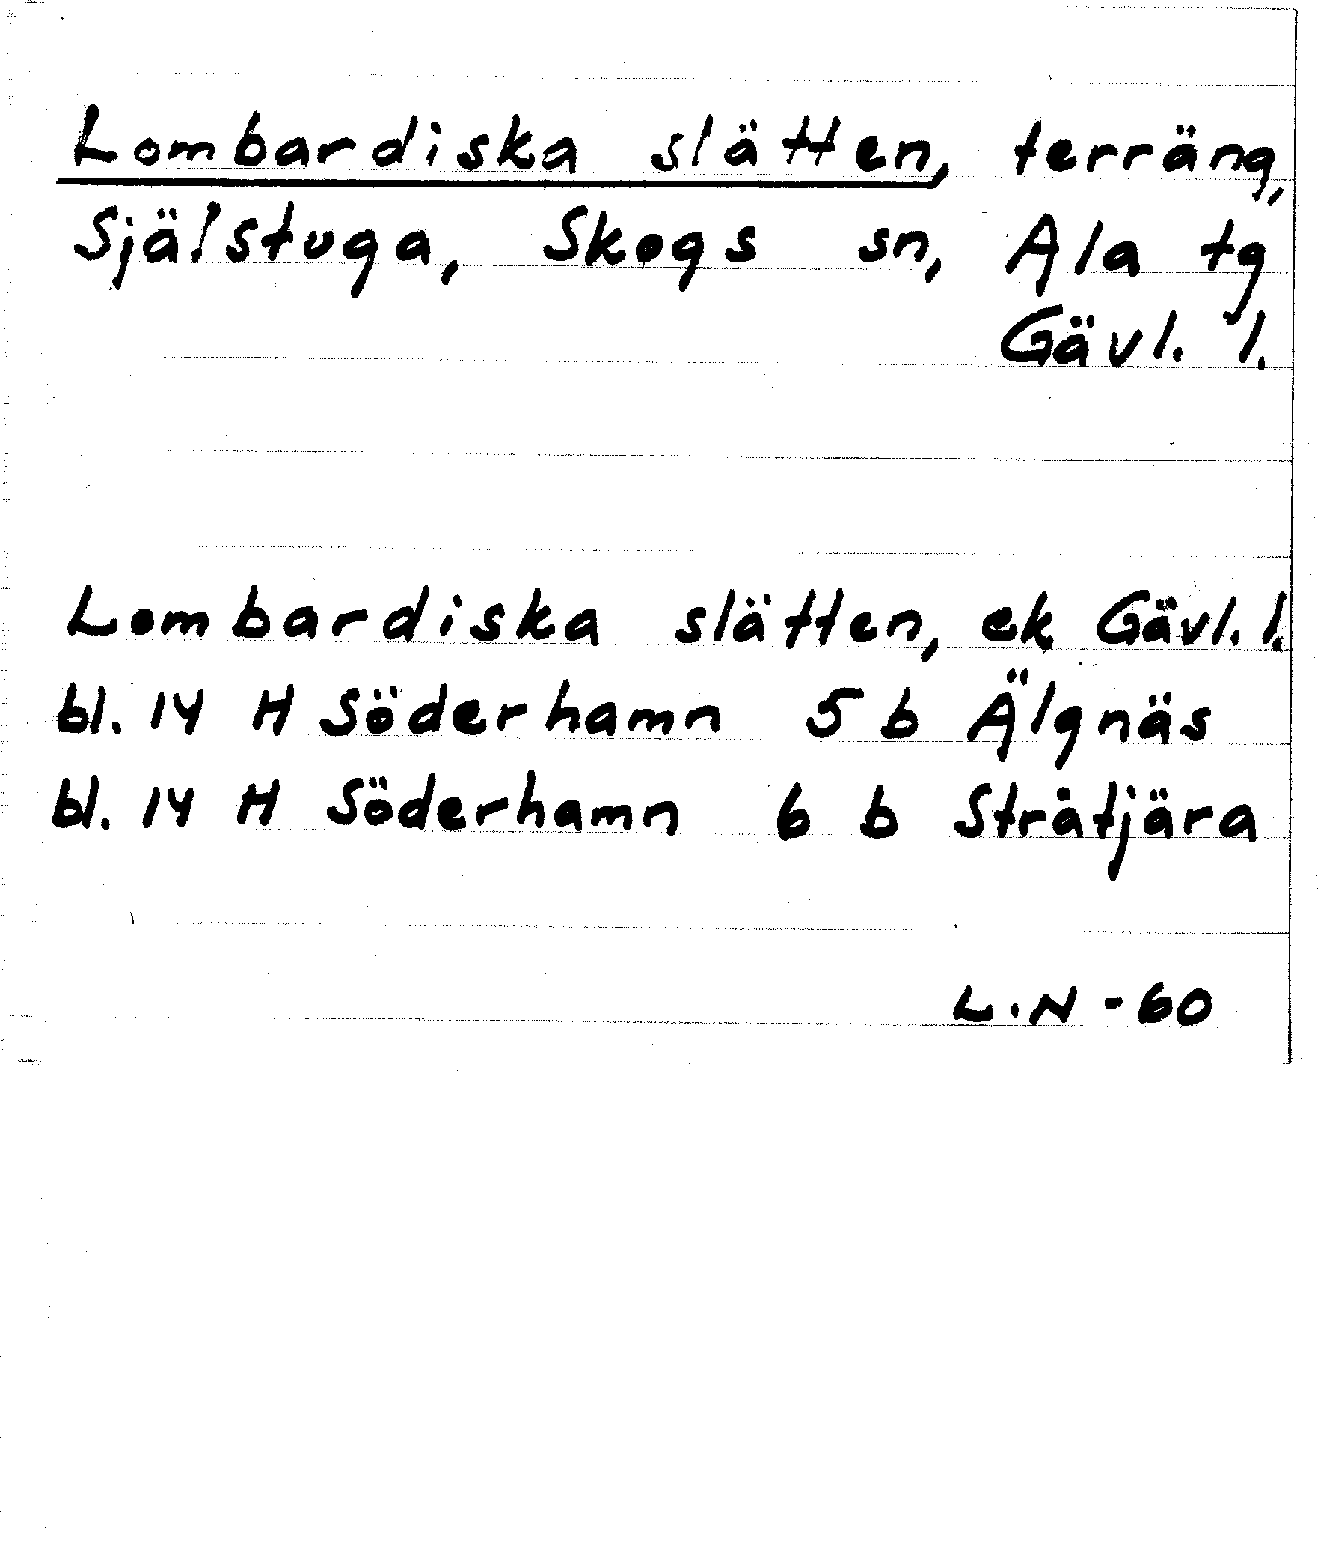 Lombardiska slätten, terräng,
Själstuga, Skogs sn, Ala tg
Gävl. l.
Lombardiska slätten, ek Gävl. l.
bl. 14 H Söderhamn 5 b Älgnäs
bl. 14 H Söderhamn 6 b Stråtjära
L.N -60